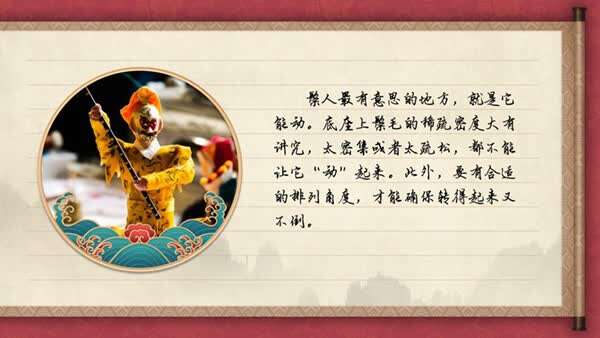 鬃人最有意思的地方，就是它
能动。底座上鬃毛的稀疏密度大有
讲究，太密集或者太疏松，都不能
让它“动”起来。此外，要有合适
的排列角度，才能确保转得起来又
不倒。